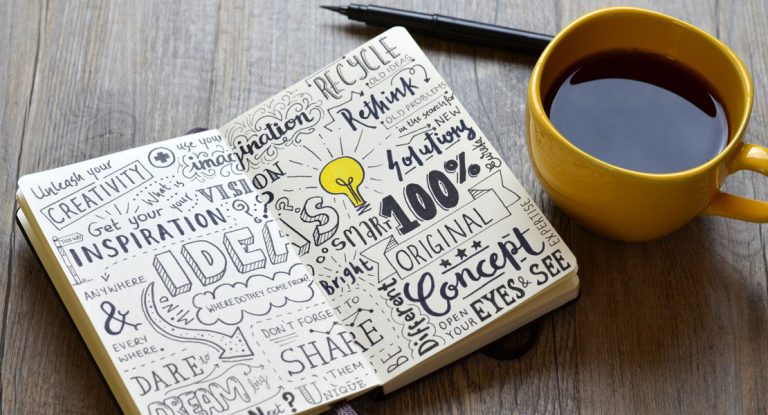 Unleash your
CREATIVITY
use your
imagination
What is
your VISION
?
Get your
INSPIRATION
IDEAS
ANYWHERE
&
EVERY
WHERE
MIND
WHERE DO THEY COME FROM?
DON'T FORGET
TO
SHARE
THEM
DARE
DREAM
big
Next?
RECYCLE
OLD IDEAS
Rethink
OLD PROBLEMS
in the search for
NEW
Solutions
Smart
100%
ORIGINAL
Bright
Concept
EXPERTISE
Different
BE
UNIQUE
OPEN
YOUR
EYES & SEE